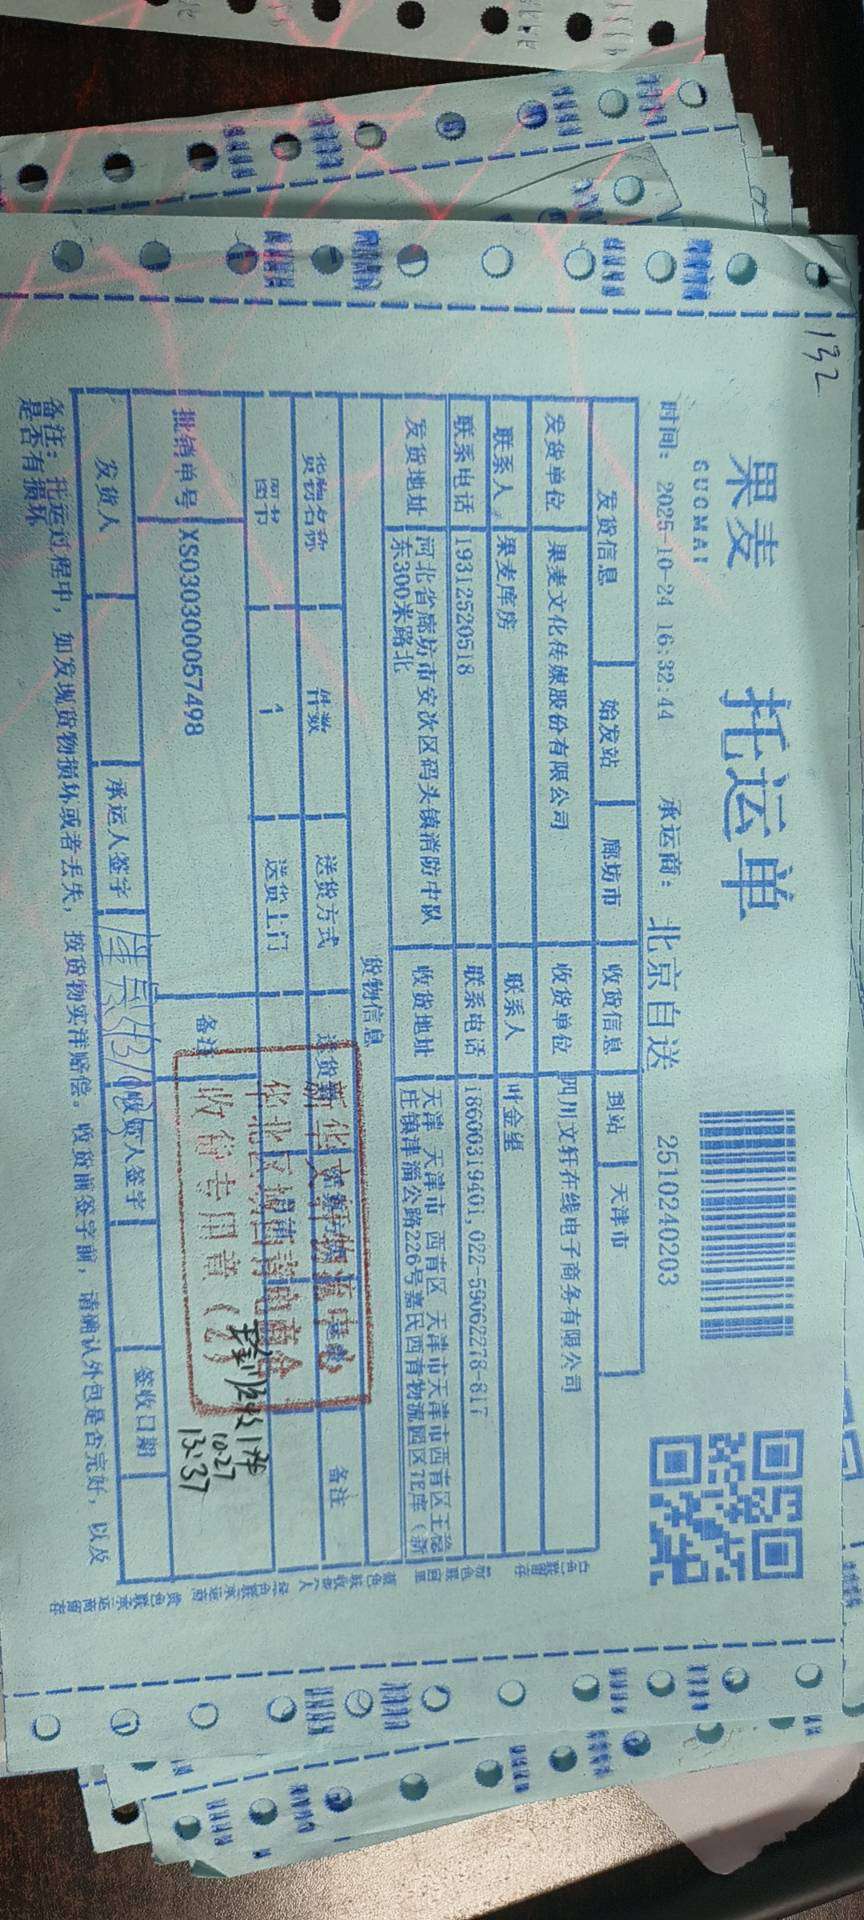 132
果麦 托运单
GUOMAI
时间: 2025-10-24 16:32:44 承运商: 北京自送 2510240203
发货信息 始发站 廊坊市 收货信息 到站 天津市
发货单位 果麦文化传媒股份有限公司 收货单位 四川文轩在线电子商务有限公司
联系人 果麦库房 联系人 叶金星
联系电话 19312520518 联系电话 18600319401,022-59062278-817
发货地址 河北省廊坊市安次区码头镇消防中队东300米路北 收货地址 天津 天津市 西青区 天津市天津市西青区王稳庄镇津淄公路226号嘉民西青物流园区7E库(新
货物信息
货物名称 件数 送货方式 备注
图书 1 送货上门
批销单号 XS030300057498 备注
新华文轩物流中心
华北区
收货专用章(2)
实收1件
10.27
13:37
发货人 承运人签字 收货人签字 签收日期
备注: 托运过程中, 如发现货物损坏或者丢失, 按货物实洋赔偿。收货前签字前, 请确认外包是否完好, 以及
是否有损坏